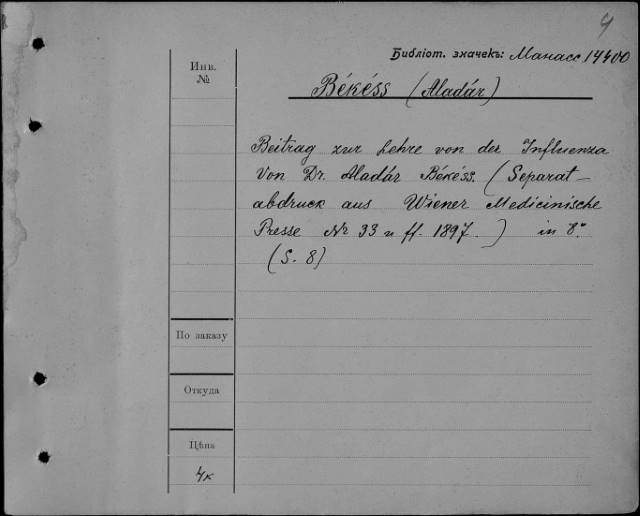 4
Библіот. значекъ: Манасс 14400
Инв.
№
Békéss (Aladár)
Beitrag zur Lehre von der Influenza
Von Dr. Aladár Békéss. (Separat-
abdruck aus Wiener Medicinische
Presse Nr 33 u ff. 1897.) in 8.°
(S. 8)
По заказу
Откуда
Цѣна
4к